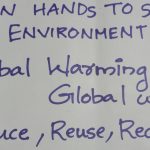 N HANDS TO S
ENVIRONMENT
bal Warming
Global w
uce, Reuse, Rec